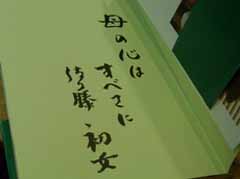 母の心は
すべてに
佐藤初女